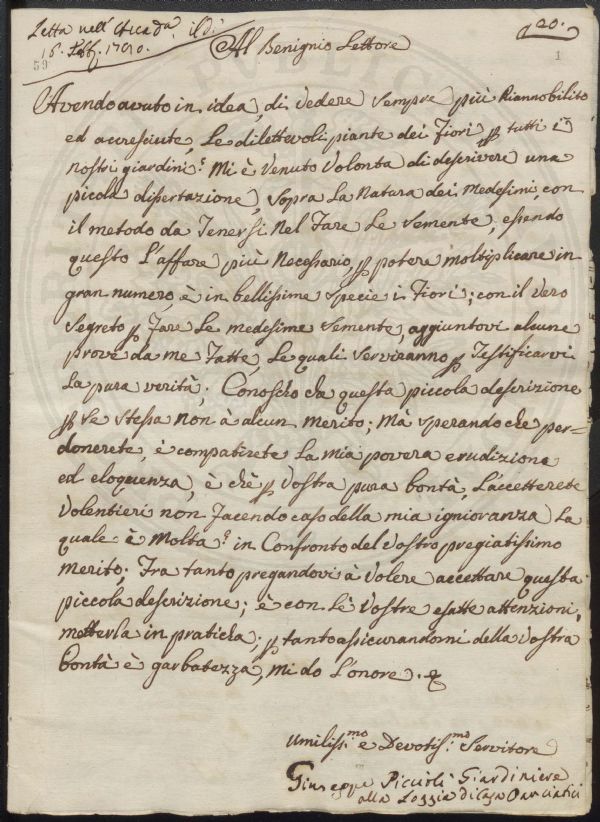 Letta nell' Accad.ª il dì
16. Febb. 1790.
20.
59
1
Al Benignio Lettore
Avendo avuto in idea, di vedere sempre più Riannobilito
ed accresciute, Le dilettevoli piante dei Fiori p tutti i
nostri giardini: Mi è Venuto Volonta di descrivere una
picola disertazione, Sopra La Natura dei Medesimi, con
il metodo da Tenersi Nel Fare Le Semente, essendo
questo L'affare più Necessario, p potere moltiplicare in
gran numero, è in bellissime specie i Fiori; con il Vero
Segreto p Fare Le medesime Semente, aggiuntovi alcune
prove da me Fatte, Le quali Serviranno p Testificarvi
La pura verità; Conoscho cha questa piccola descrizione
p Se stessa non à alcun merito; Mà sperando che per=
donerete, è compatirete La mia povera erudizione
ed eloquenza, è chè p Vostra pura bontà, L'accetterete
Volentieri non Facendo caso della mia igniovanza La
quale è Molta: in Confronto del Vostro pregiatissimo
Merito; Fra tanto pregandovi à Volere accettare questa
piccola descrizione; è con Lè Vostre esatte attenzioni,
metterla in praticha; p tanto assicurandomi della Vostra
bontà è garbatezza, Mi do L'onore.
Umiliss:mo e Devotis:mo Servitore
Giuseppe Piccioli Giardiniere
alla Loggia di Casa Panciatici